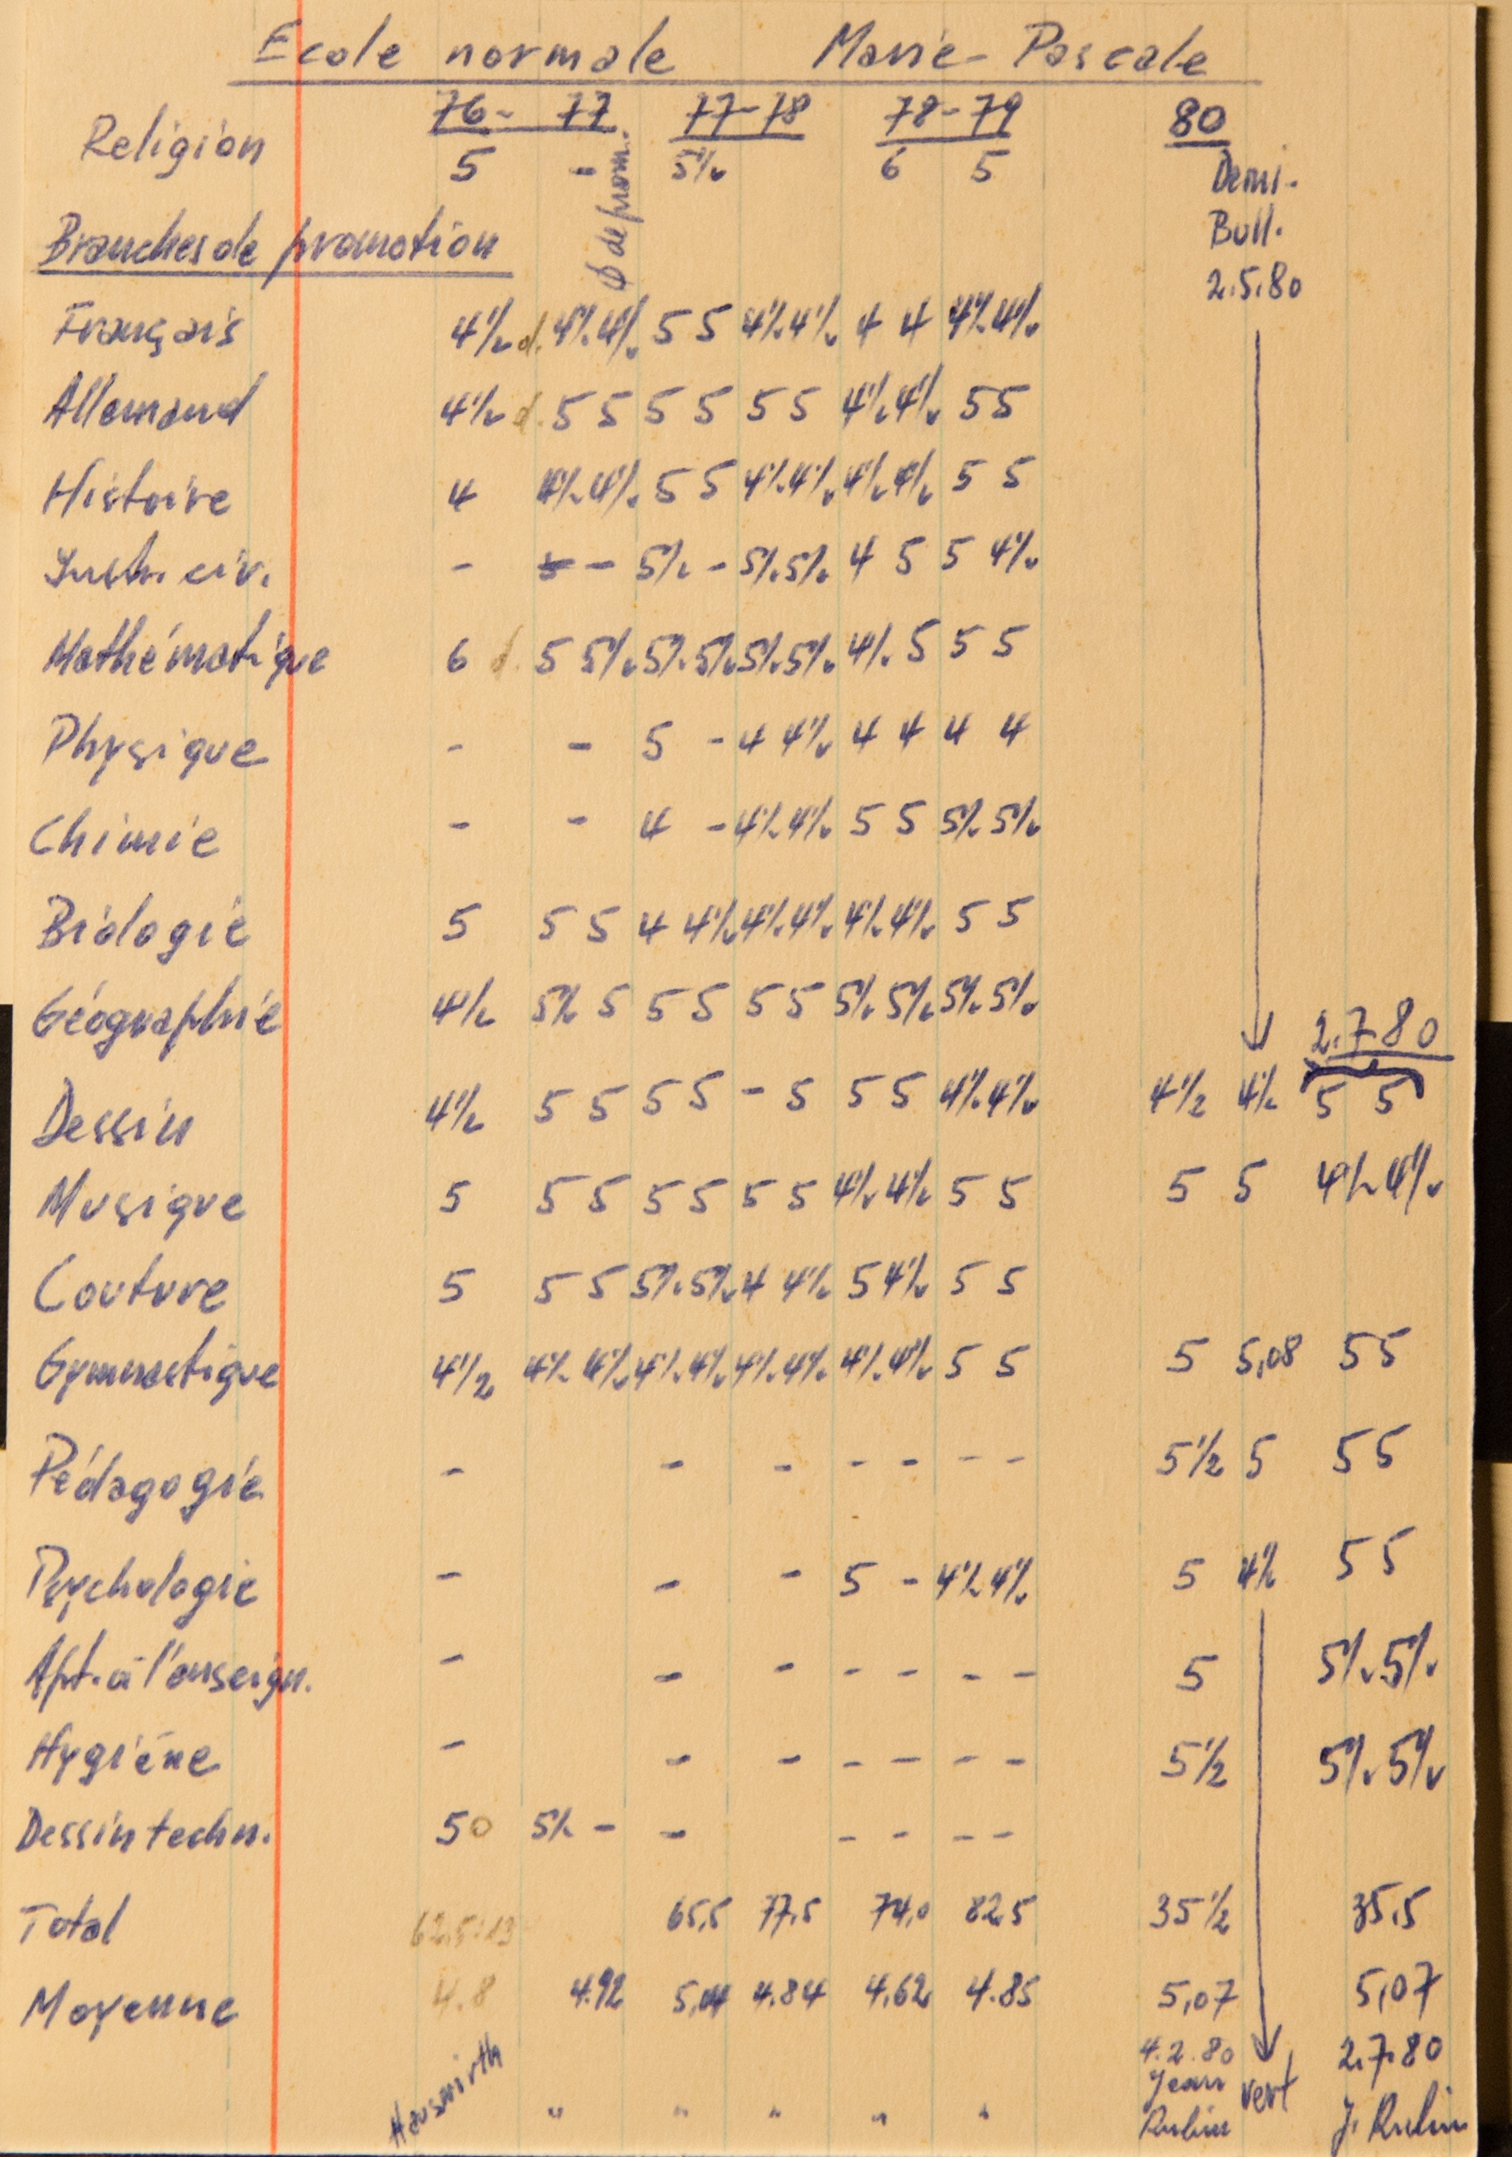 Ecole normale Marie-Pascale
76-77 77-78 78-79 80
Religion 5 - 5½ 6 5 Demi-
Ø de prom.
Bull.
Branches de promotion
2.5.80
Français 4½ d. 4½ 4½ 5 5 4½ 4½ 4 4 4½ 4½
Allemand 4½ d. 5 5 5 5 5 5 4½ 4½ 5 5
Histoire 4 4½ 4½ 5 5 4½ 4½ 4½ 4½ 5 5
Instr. civ. - - 5½ - 5½ 5½ 4 5 5 4½
Mathématique 6 d. 5 5½ 5½ 5½ 5½ 5½ 4½ 5 5 5
Physique - - 5 - 4 4½ 4 4 4 4
Chimie - - 4 - 4½ 4½ 5 5 5½ 5½
Biologie 5 5 5 4 4½ 4½ 4½ 4½ 4½ 5 5
Géographie 4½ 5½ 5 5 5 5 5 5½ 5½ 5½ 5½
2.7.80
Dessin 4½ 5 5 5 5 - 5 5 5 4½ 4½ 4½ 4½ 5 5
Musique 5 5 5 5 5 5 5 4½ 4½ 5 5 5 5 4½ 4½
Couture 5 5 5 5½ 5½ 4 4½ 5 4½ 5 5
Gymnastique 4½ 4½ 4½ 4½ 4½ 4½ 4½ 4½ 4½ 5 5 5 5,08 5 5
Pédagogie - - - - - - - 5½ 5 5 5
Psychologie - - - 5 - 4½ 4½ 5 4½ 5 5
Apt. à l'enseign. - - - - - - - 5 5½ 5½
Hygiène - - - - - - - 5½ 5½ 5½
Dessin techn. 50 5½ - - - - - -
Total 62,5:13 65,5 77,5 74,0 82,5 35½ 35,5
Moyenne 4.8 4.92 5,04 4.84 4,62 4.85 5,07 5,07
4.2.80 2.7.80
Hauswirth " " " " " Jean Rubin vert J. Rubin